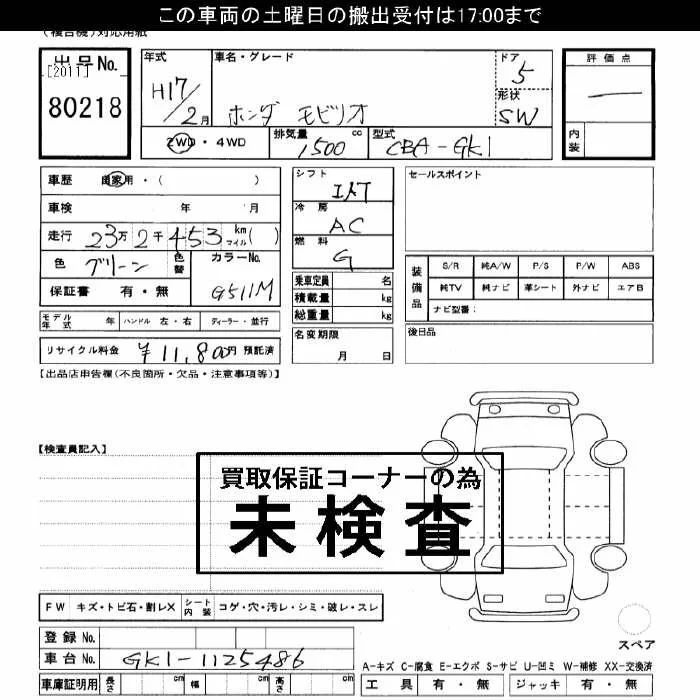 この車両の土曜日の搬出受付は17:00まで
(複合機)対応用紙
出品No. [2011] 80218
年式 H17/2月
車名・グレード ホンダ モビリオ
ドア 5
形状 SW
評価点 —
内装
2WD・4WD
排気量 1500 cc
型式 CBA-GK1
車歴 自家用・( )
車検 年 月
走行 23万2千453 km マイル( )
色 グリーン 色替 カラーNo. G511M
保証書 有・無
シフト IAT
冷房 AC
燃料 G
乗車定員 名
積載量 kg
総重量 kg
セールスポイント
装備品 S/R 純A/W P/S P/W ABS
純TV 純ナビ 革シート 外ナビ エアB
ナビ型番:
モデル年式 年 ハンドル 左・右 ディーラー・並行
名変期限 月 日
後日品
リサイクル料金 ¥11,800円 預託済
【出品店申告欄(不良箇所・欠品・注意事項等)】
【検査員記入】
買取保証コーナーの為
未検査
FW キズ・トビ石・割レX シート内装 コゲ・穴・汚レ・シミ・破レ・スレ
スペア
登録No.
車台No. GK1-1125486
A-キズ C-腐食 E-エクボ S-サビ U-凹ミ W-補修 XX-交換済
車庫証明用 長さ cm 幅 cm 高さ cm
工具 有・無 ジャッキ 有・無